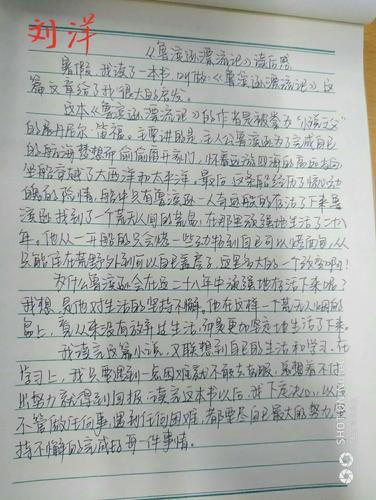 刘洋
《鲁滨逊漂流记》读后感
暑假,我读了一本书,叫做《鲁滨逊漂流记》这
篇文章给了我很大的启发。
这本《鲁滨逊漂流记》的作者是被誉为"小说之父"
的丹尼尔·笛福。主要讲的是:主人公鲁滨逊为了完成自己
的航海梦想而偷偷离开家门,怀着远游四海的高远志向
坐船穿越了大西洋和太平洋。最后,这条船经历了惊心动
魄的险情,船中只有鲁滨逊一人奇迹般的存活了下来鲁
滨逊找到了个荒无人间的荒岛,在那里顽强地生活了二十八
年。他从一开始的只会烤一些动物到自己可以烤面包,从
只能住在荒野外到可以自己盖房子,这是多大的一个改变啊!
为什么鲁滨逊会在这二十八年中顽强地存活下来呢?
我想,是他对生活的坚持不懈。他在这样一个荒无人烟的
岛上,看从来没有放弃过生活,而是更加坚定地生活了下来。
我读完这篇小说,又联想到自己的生活和学习。在
学习上,我只要遇到一点困难就不敢去克服,总想着不付
出努力就得到回报。读完这本书以后,我下定决心,以后
不管做任何事,遇到任何困难,都要尽自己最大的努力,坚
持不懈的完成好每一件事情。
SHOT ON